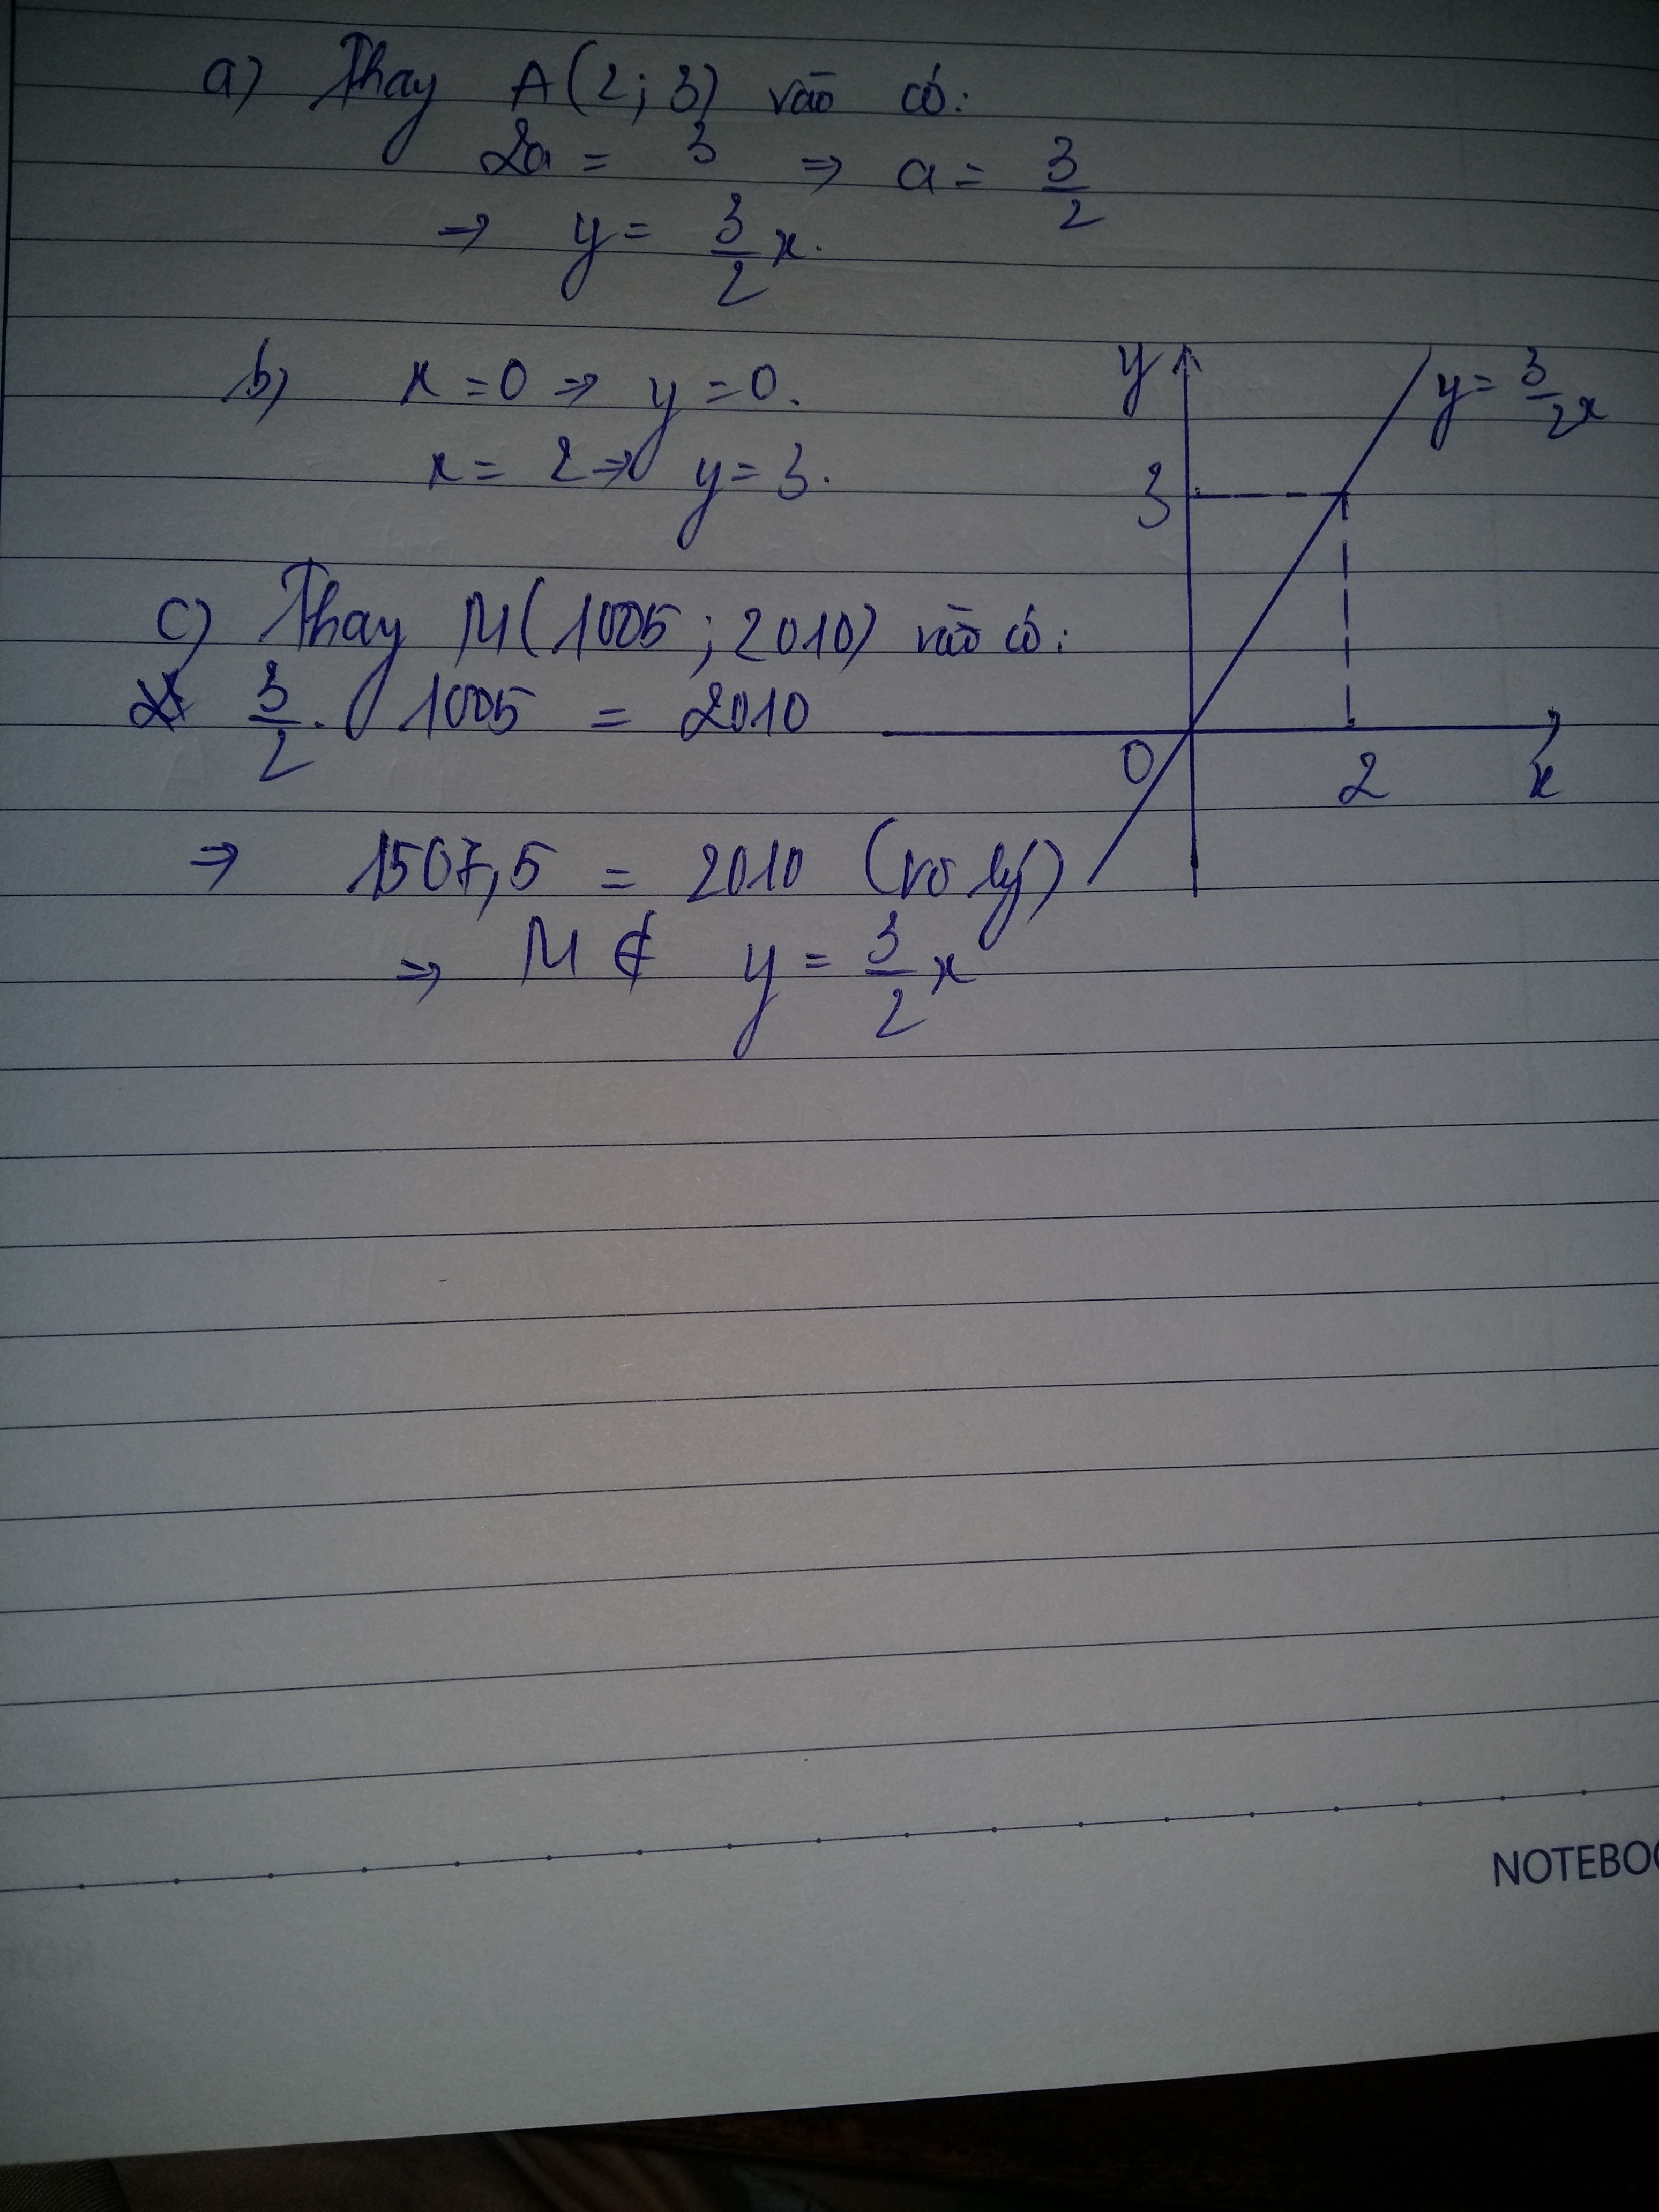 a) Thay A(2; 3) vào có:
2a = 3 ⇒ a = 3/2
⇒ y = 3/2 x.
b) x = 0 ⇒ y = 0.
x = 2 ⇒ y = 3.
y
y = 3/2 x
3
0
2
x
c) Thay M(1005; 2010) vào có:
3/2 . 1005 = 2010
⇒ 1507,5 = 2010 (vô lý)
⇒ M ∉ y = 3/2 x